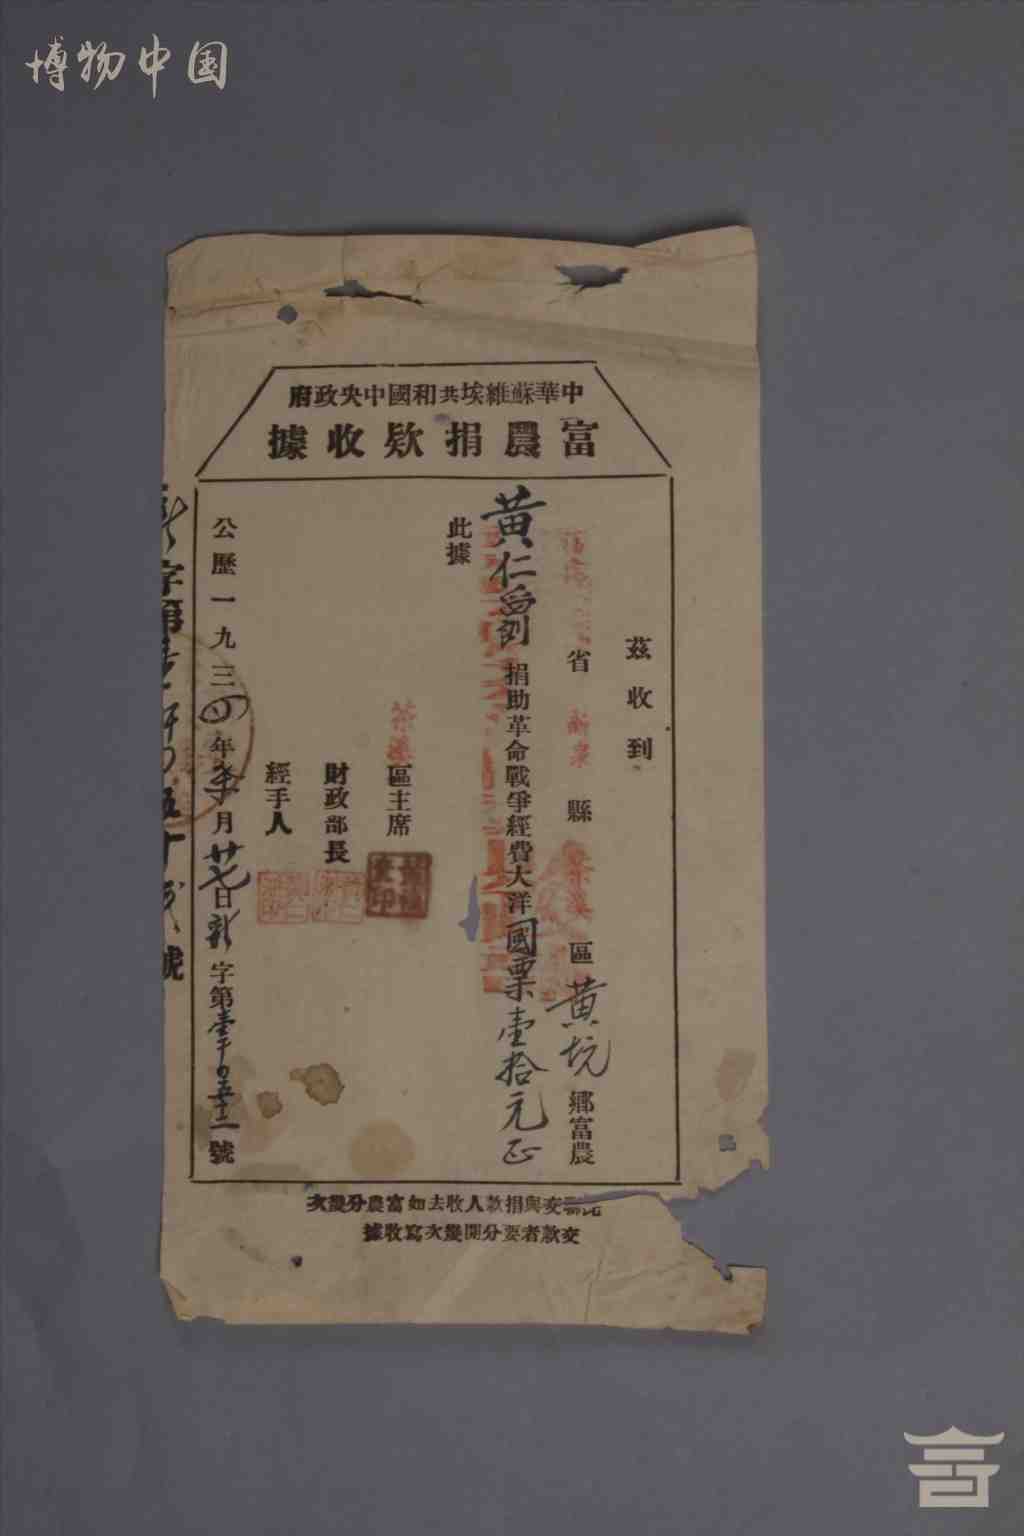 博物中国
中華蘇維埃共和國中央政府
富農捐欵收據
茲收到
福建省新泉縣茶溪區黄坑鄉富農
黄仁 捐助革命戰爭經費大洋國票壹拾元正
此據
茶溪區主席
財政部長
經手人
公歷一九三四年 月廿七日新字第壹千0五十二號
字第壹千0五十弍號
交與捐款人收去如富農分幾次
交款者要分開幾次寫收據